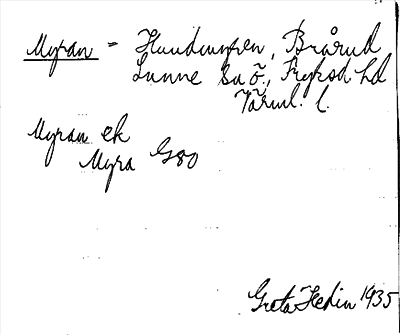 Myran - Hundmyren, Brårud
Sunne sn ö., Fryksd. hd
Värml. l.
Myran ek
Myra G80
Greta Hedin 1935